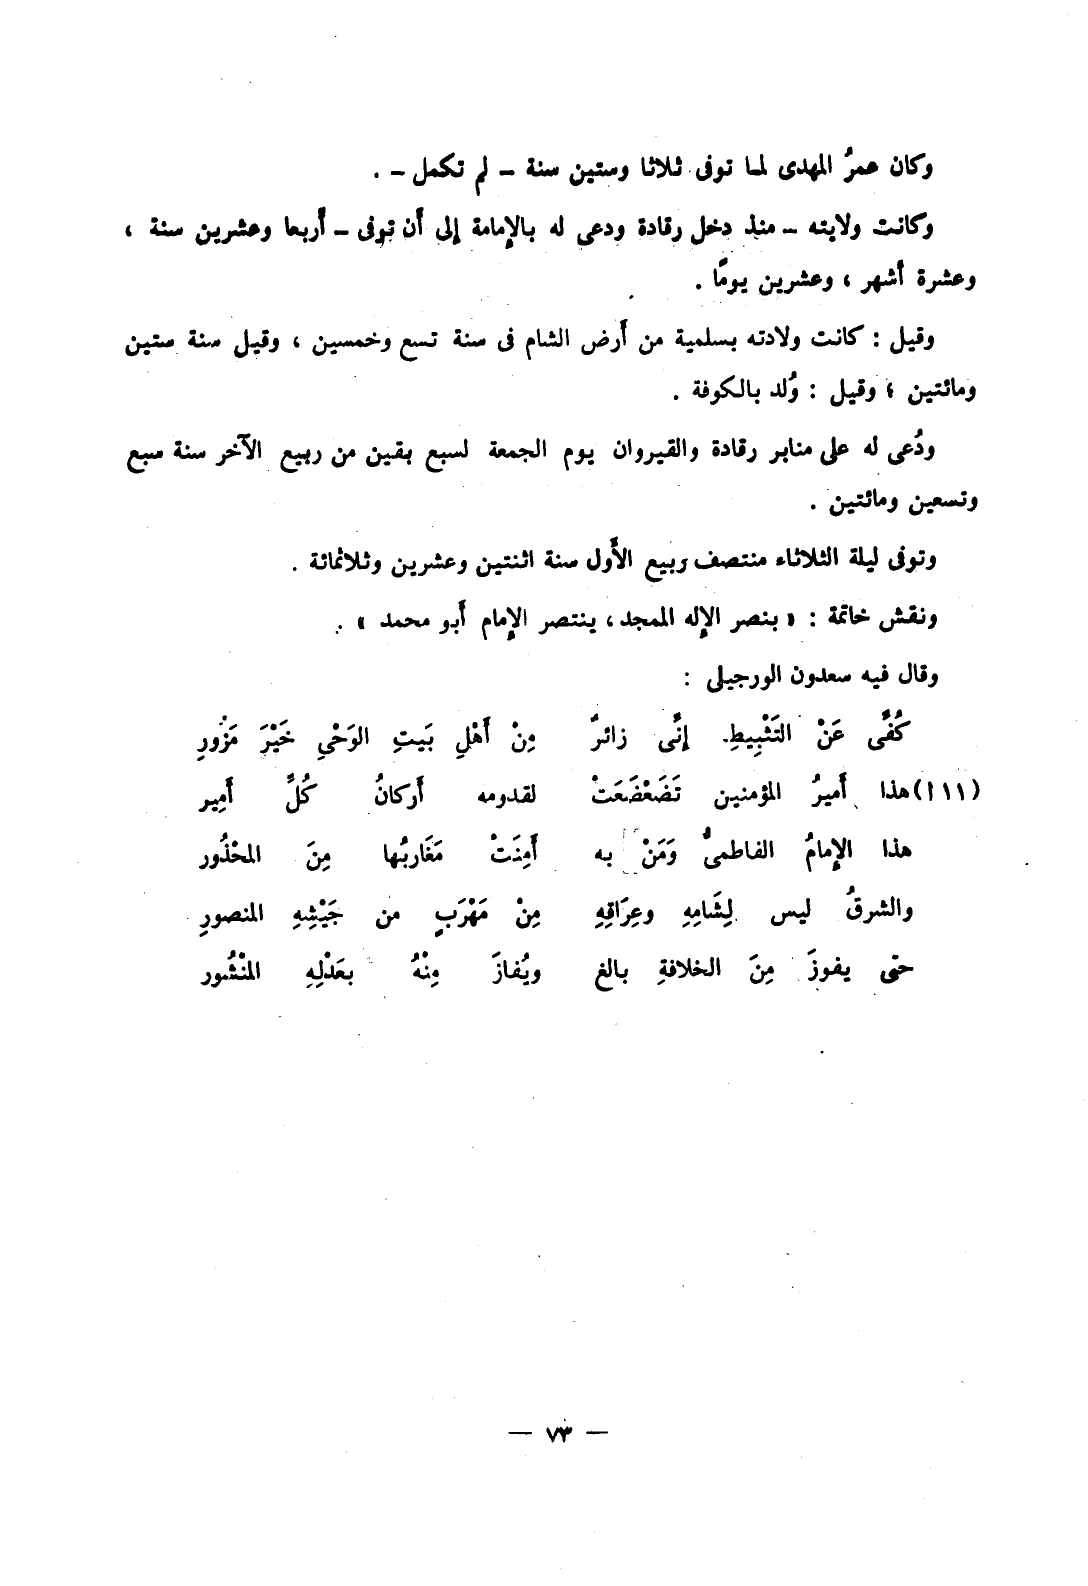 وكان عمرُ المهدى لما توفى ثلاثا وستين سنة – لم تكمل – .
وكانت ولايته – منذ دخل رقادة ودعى له بالإمامة إلى أن توفى – أربعا وعشرين سنة ،
وعشرة أشهر ، وعشرين يومًا .
وقيل : كانت ولادته بسلمية من أرض الشام فى سنة تسع وخمسين ، وقيل سنة ستين
ومائتين ؛ وقيل : وُلد بالكوفة .
ودُعى له على منابر رقادة والقيروان يوم الجمعة لسبع بقين من ربيع الآخر سنة سبع
وتسعين ومائتين .
وتوفى ليلة الثلاثاء منتصف ربيع الأول سنة اثنتين وعشرين وثلاثمائة .
ونقش خاتمة : « بنصر الإله الممجد ، ينتصر الإمام أبو محمد » .
وقال فيه سعدون الورجيلى :
كُفِّى عَنْ التَثْبِيطِ إنِّى زائرٌ مِنْ أَهْلِ بَيتِ الوَحْىِ خَيْرَ مَزُورِ
(١١١) هذا أميرُ المؤمنين تَضَعْضَعَتْ لقدومه أركانُ كُلِّ أمِير
هذا الإمامُ الفاطمىُّ وَمَنْ به أمِنَتْ مَغَاربُها مِنَ المحْذُور
والشرقُ ليس لِشَامِهِ وعِرَاقِهِ مِنْ مَهْرَبٍ من جَيْشِهِ المنصورِ
حتى يفوزَ مِنَ الخلافةِ بالغ ويُفازَ مِنْهُ بعَدْلِهِ المنْشُور
— ٧٣ —